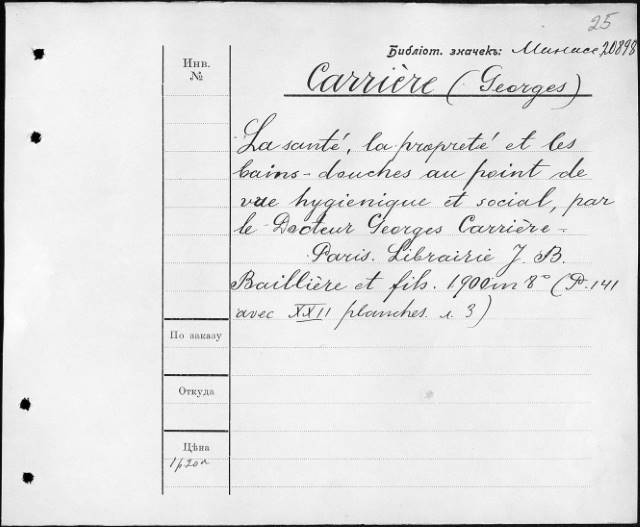 25
Библiот. значекъ: Минасс 20898
Инв.
№
Carrière (Georges)
La santé, la propreté et les
bains-douches au point de
vue hygienique et social, par
le Docteur Georges Carrière.
Paris. Librairie J. B.
Baillière et fils. 1900 in 8° (P. 141
avec XXII planches. 3)
По заказу
Откуда
Цѣна
1р20к